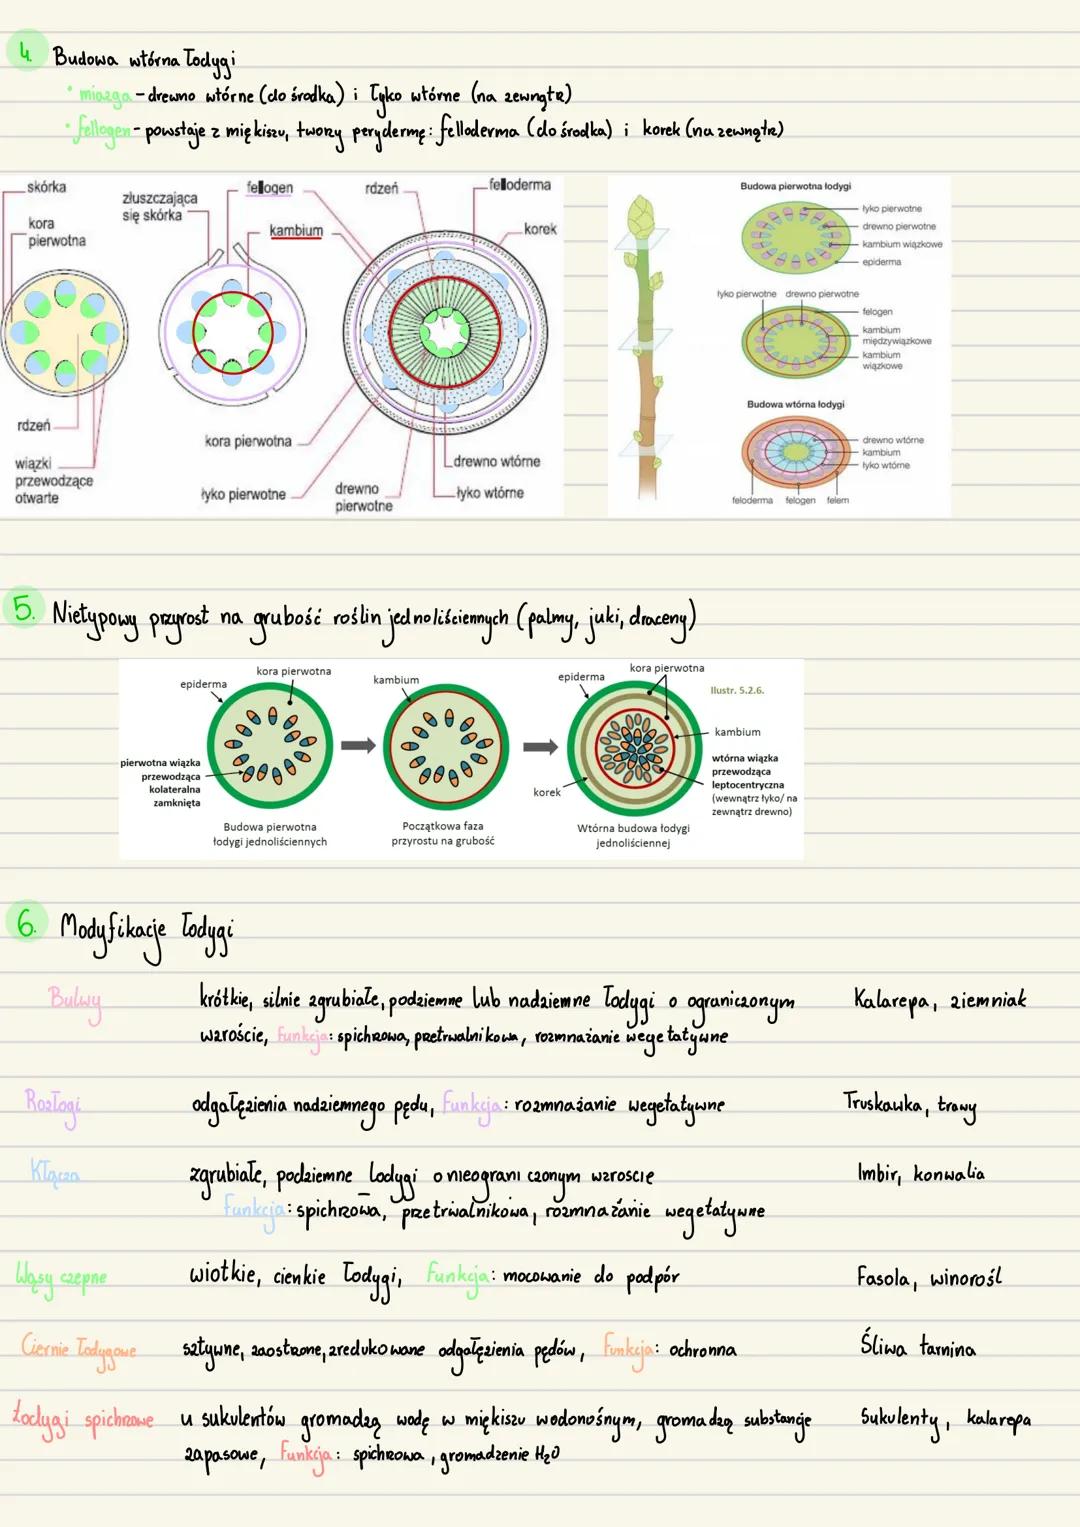 4. Budowa wtórna łodygi
• miazga - drewno wtórne (do środka) i łyko wtórne (na zewnątrz)
• fellogen - powstaje z miękiszu, tworzy perydermę: felloderma (do środka) i korek (na zewnątrz)
skórka
kora
pierwotna
złuszczająca
się skórka
fellogen
kambium
rdzeń
felloderma
korek
rdzeń
wiązki
przewodzące
otwarte
kora pierwotna
łyko pierwotne
drewno
pierwotne
drewno wtórne
łyko wtórne
Budowa pierwotna łodygi
łyko pierwotne
drewno pierwotne
kambium wiązkowe
epiderma
łyko pierwotne drewno pierwotne
felogen
kambium
międzywiązkowe
kambium
wiązkowe
Budowa wtórna łodygi
drewno wtórne
kambium
łyko wtórne
feloderma felogen felem
5. Nietypowy przyrost na grubość roślin jednoliściennych (palmy, juki, draceny)
epiderma
kora pierwotna
pierwotna wiązka
przewodząca
kolateralna
zamknięta
Budowa pierwotna
łodygi jednoliściennych
kambium
Początkowa faza
przyrostu na grubość
epiderma
kora pierwotna
Ilustr. 5.2.6.
kambium
korek
wtórna wiązka
przewodząca
leptocentryczna
(wewnątrz łyko/ na
zewnątrz drewno)
Wtórna budowa łodygi
jednoliściennej
6. Modyfikacje łodygi
Bulwy krótkie, silnie zgrubiałe, podziemne lub nadziemne łodygi o ograniczonym Kalarepa, ziemniak
wzroście, Funkcja: spichrzowa, przetrwalnikowa, rozmnażanie wegetatywne
Rozłogi odgałęzienia nadziemnego pędu, Funkcja: rozmnażanie wegetatywne Truskawka, trawy
Kłącza zgrubiałe, podziemne łodygi o nieograniczonym wzroscie Imbir, konwalia
Funkcja: spichrzowa, przetrwalnikowa, rozmnażanie wegetatywne
Wąsy czepne wiotkie, cienkie łodygi, Funkcja: mocowanie do podpór Fasola, winorośl
Ciernie łodygowe sztywne, zaostrzone, zredukowane odgałęzienia pędów, Funkcja: ochronna Śliwa tarnina
Łodygi spichrzowe u sukulentów gromadzą wodę w miękiszu wodonośnym, gromadzą substancje Sukulenty, kalarepa
zapasowe, Funkcja: spichrzowa, gromadzenie H₂O